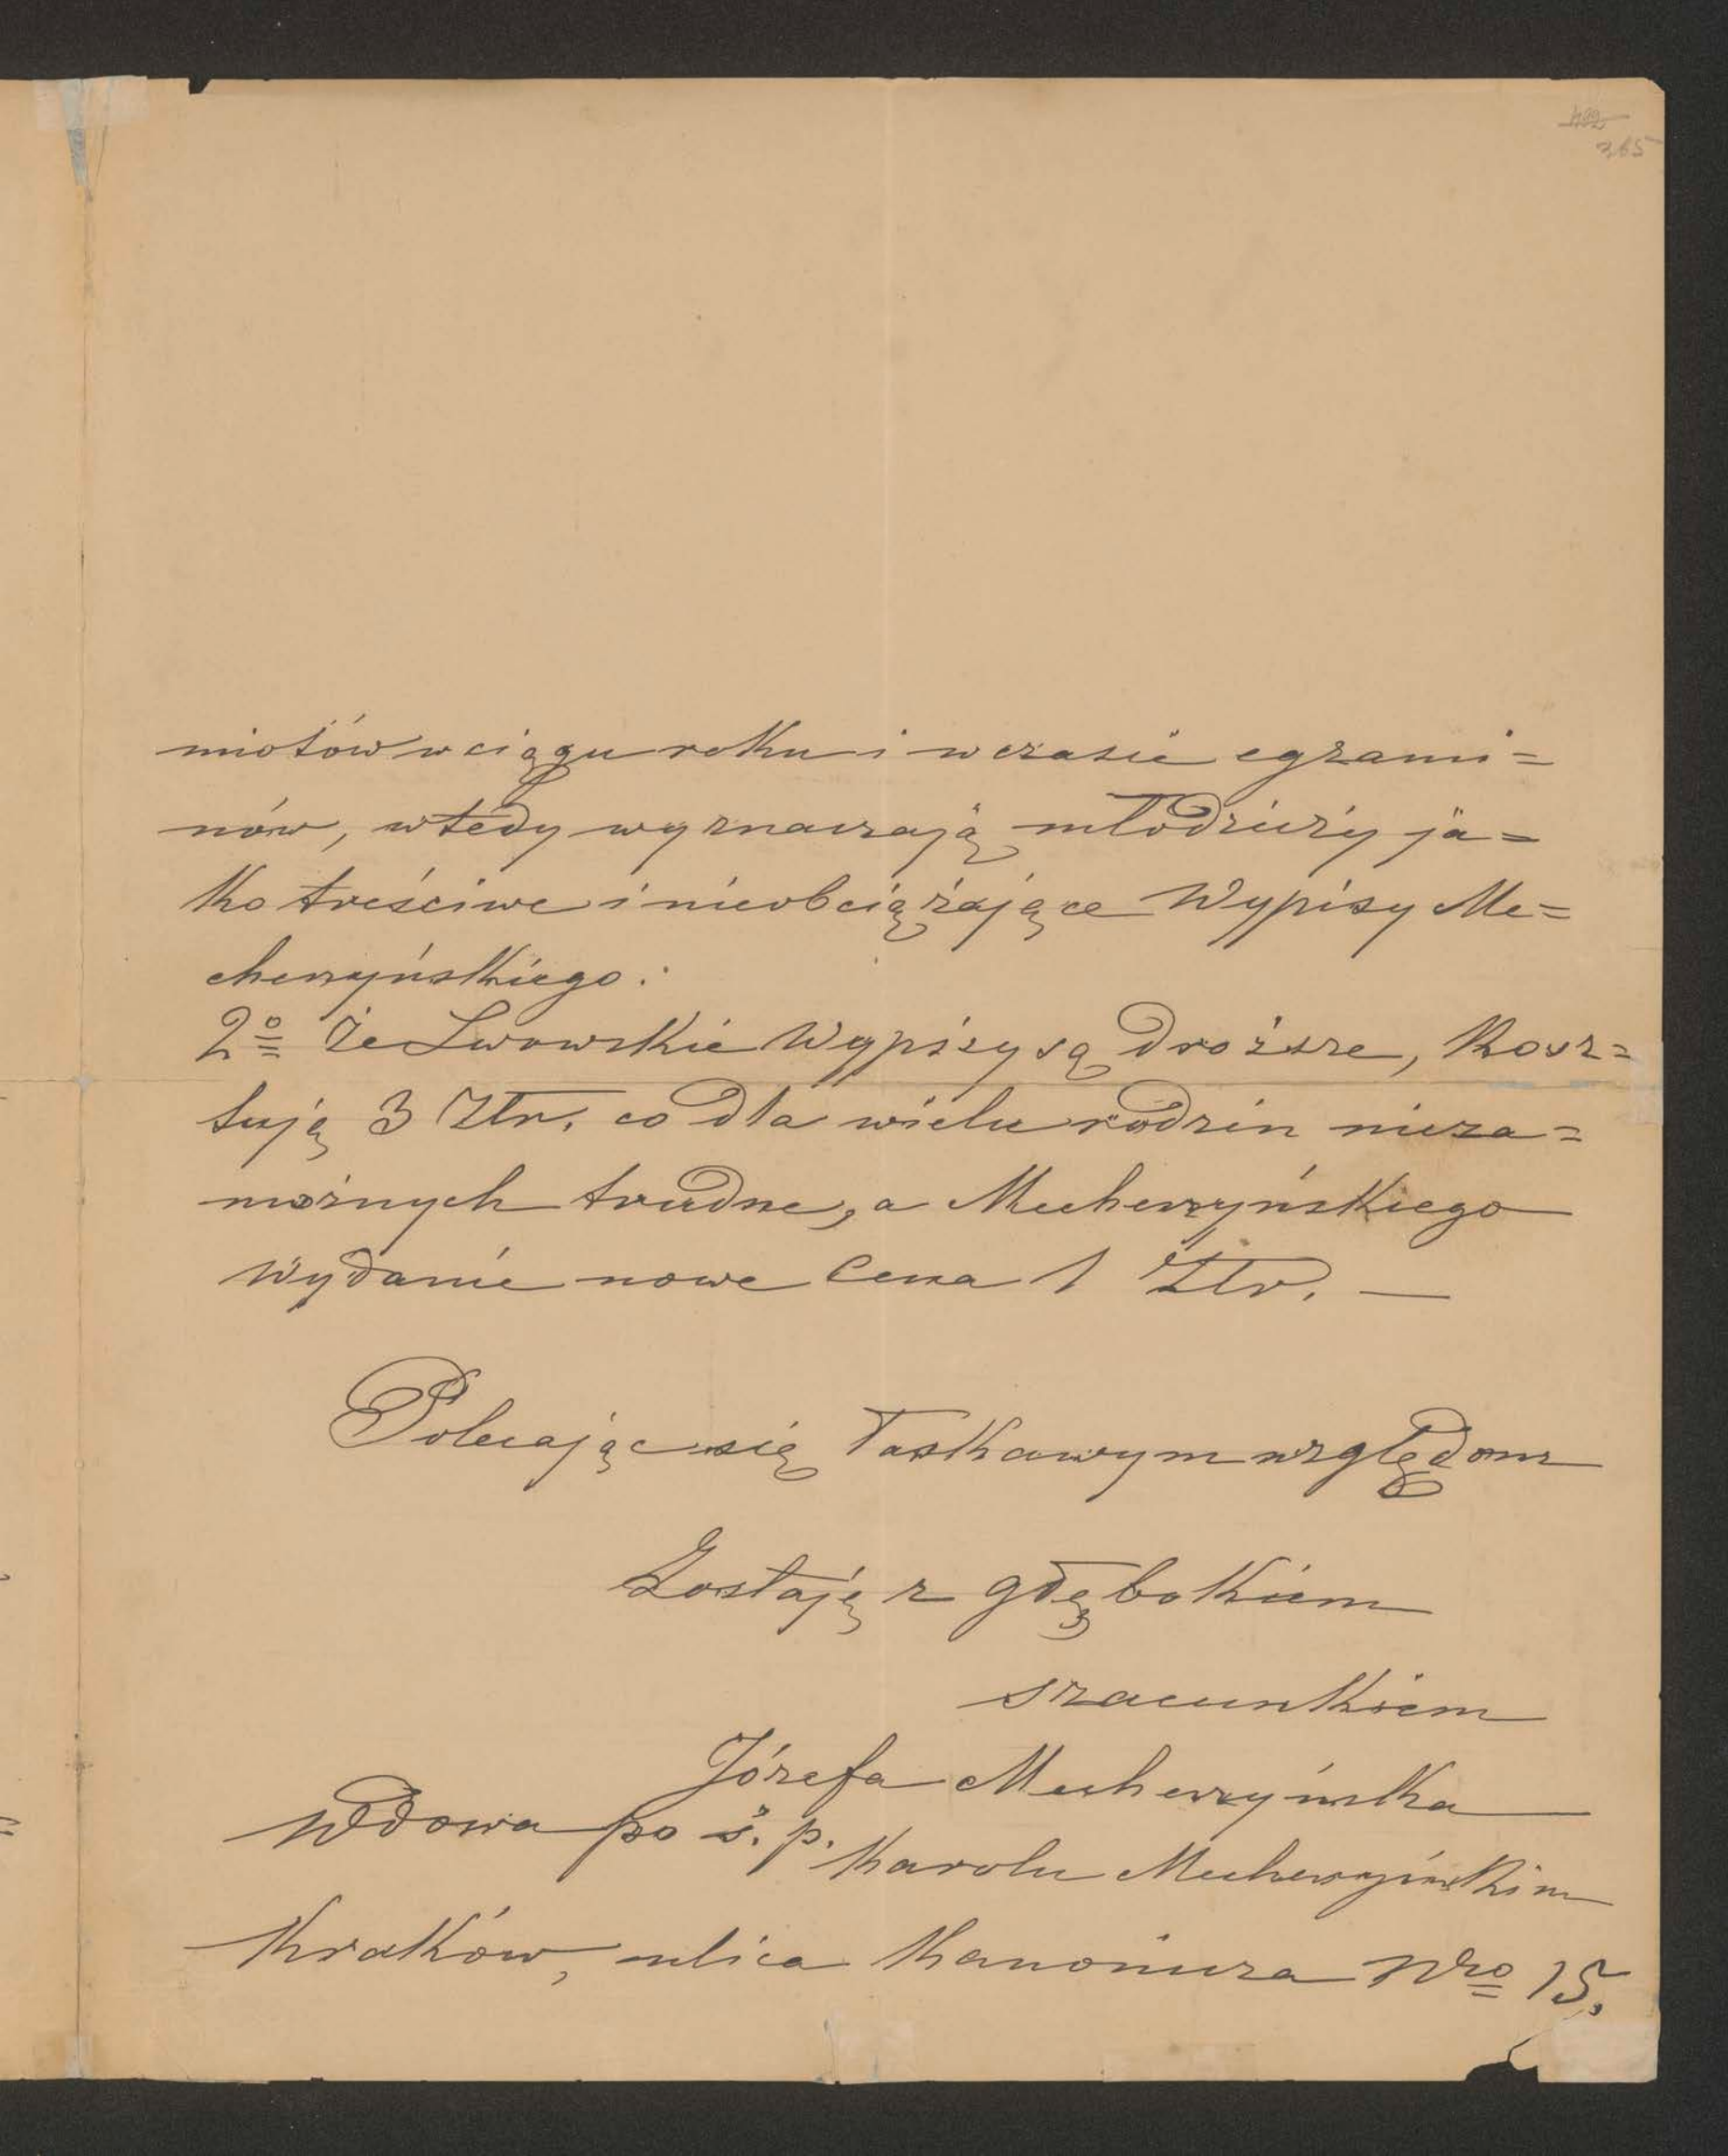 365
miotów w ciągu roku i w czasie egzami=
nów, wtedy wyznaczają młodzieży ja=
ko treściwe i nieobciążające Wypisy Me=
cherzyńskiego.
2º Że Lwowskie Wypisy są droższe, kosz=
tują 3 Złr. co dla wielu rodzin nieza=
możnych trudne, a Mecherzyńskiego
Wydanie nowe Cena 1 Złr. —
Polecając się łaskawym względom
Zostaję z głębokiem
szacunkiem
Józefa Mecherzyńska
Wdowa po ś. p. Karolu Mecherzyńskim
Kraków, ulica Kanonicza Nro 15.